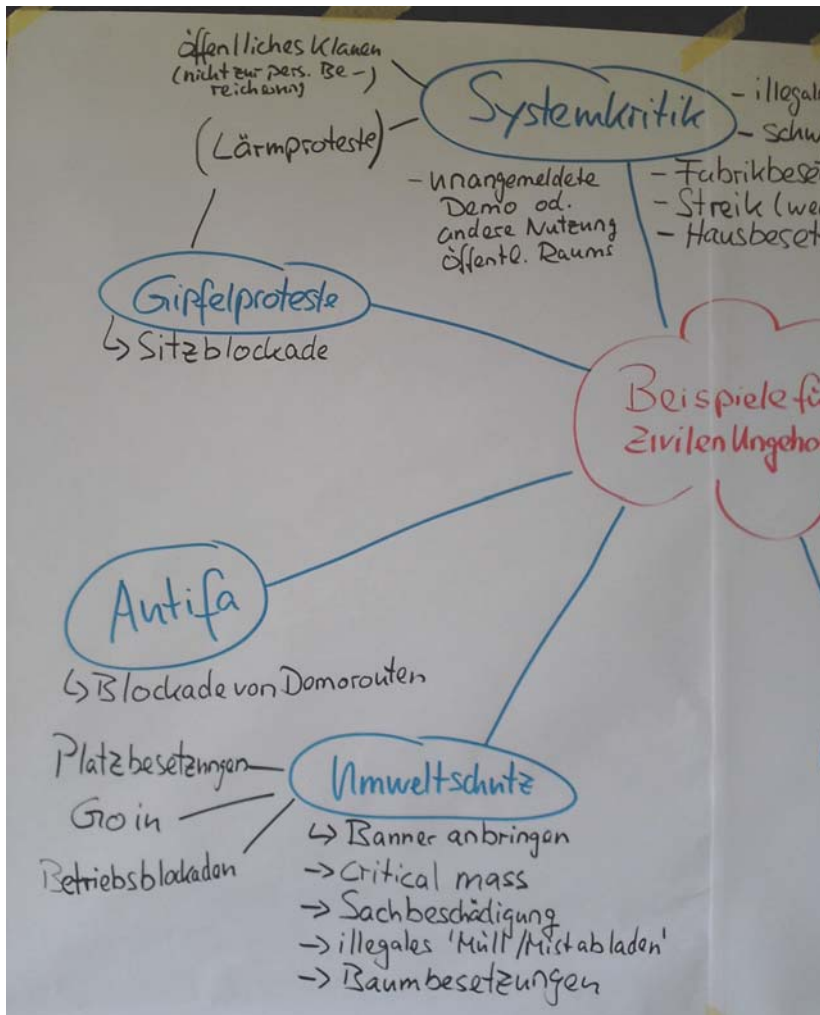 öffentliches Klauen
(nicht zur pers. Be-)
reicherung
(Lärmproteste)
Systemkritik
- illegale
- Schw
- Fabrikbese
- Streik (we
- Hausbeset
- unangemeldete
Demo od.
andere Nutzung
öffentl. Raums
Gipfelproteste
↳ Sitzblockade
Beispiele fü
Zivilen Ungeho
Antifa
↳ Blockade von Domorouten
Umweltschutz
Platzbesetzungen
Go in
Betriebsblockaden
↳ Banner anbringen
→ Critical mass
→ Sachbeschädigung
→ illegales 'Müll'/Mistabladen'
→ Baumbesetzungen